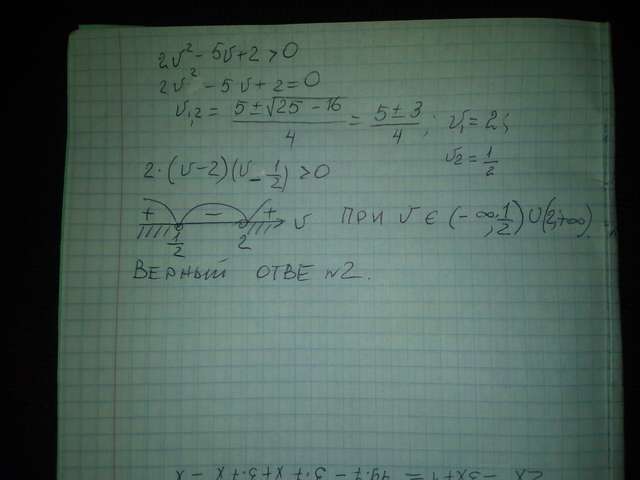 2v² - 5v + 2 > 0
2v² - 5v + 2 = 0
v₁,₂ = (5 ± √(25 - 16))/4 = (5 ± 3)/4 ; v₁ = 2 ;
v₂ = 1/2
2·(v - 2)(v - 1/2) > 0
+ - + v ПРИ v ∈ (-∞; 1/2) ∪ (2; +∞)
1/2 2
ВЕРНЫЙ ОТВЕ №2.